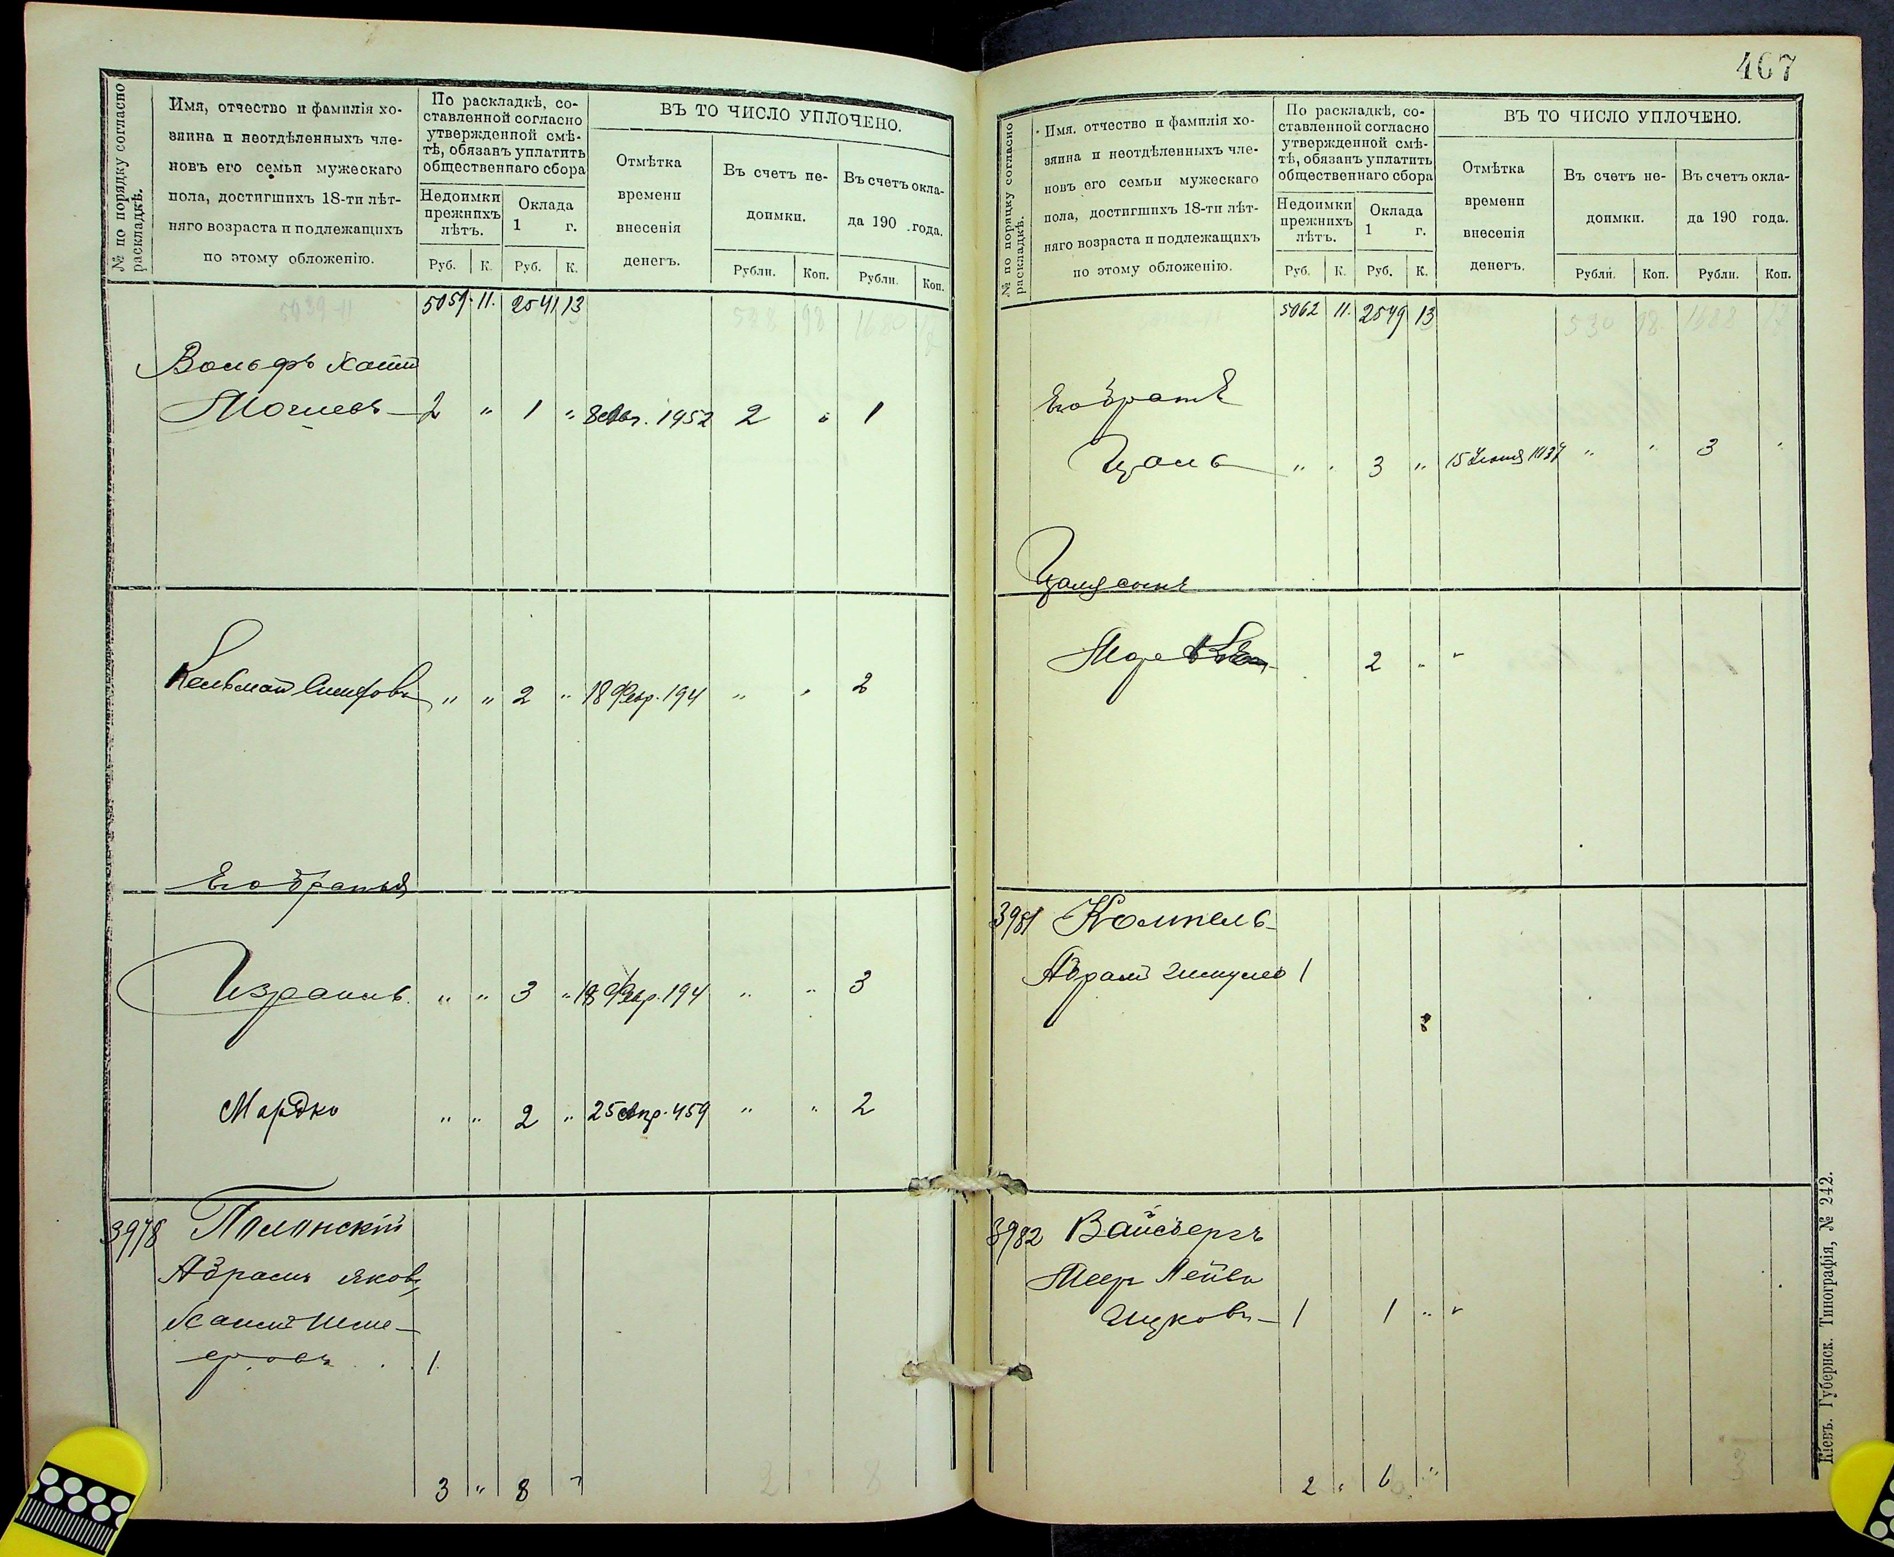 № по порядку согласно раскладкѣ.
Имя, отчество и фамилія хо-
зяина и неотдѣленныхъ чле-
новъ его семьи мужескаго
пола, достигшихъ 18-ти лѣт-
няго возраста и подлежащихъ
по этому обложенію.
По раскладкѣ, со-
ставленной согласно
утвержденной смѣ-
тѣ, обязанъ уплатить
общественнаго сбора
Недоимки
прежнихъ
лѣтъ.
Оклада
1 г.
Руб. К. Руб. К.
ВЪ ТО ЧИСЛО УПЛОЧЕНО.
Отмѣтка
времени
внесенія
денегъ.
Въ счетъ не-
доимки.
Въ счетъ окла-
да 190 года.
Рубли. Коп. Рубли. Коп.
5059 11. 2541 13
Вольфъ Хаим
Мошков 2 " 1 " 1952 2 " 1
Кельман " " 2 " 18 Февр. 194 " " 2
Его братья
Израиль " " 3 " 18 Февр. 194 " " 3
Мордко " " 2 " 25 Апр. 459 " " 2
3978 Полонскій
Абрамъ Янков
Хаимъ Шме-
еровъ . . 1.
3 " 8 "
467
№ по порядку согласно раскладкѣ.
Имя, отчество и фамилія хо-
зяина и неотдѣленныхъ чле-
новъ его семьи мужескаго
пола, достигшихъ 18-ти лѣт-
няго возраста и подлежащихъ
по этому обложенію.
По раскладкѣ, со-
ставленной согласно
утвержденной смѣ-
тѣ, обязанъ уплатить
общественнаго сбора
Недоимки
прежнихъ
лѣтъ.
Оклада
1 г.
Руб. К. Руб. К.
ВЪ ТО ЧИСЛО УПЛОЧЕНО.
Отмѣтка
времени
внесенія
денегъ.
Въ счетъ не-
доимки.
Въ счетъ окла-
да 190 года.
Рубли. Коп. Рубли. Коп.
5062 11. 2549 13
530 98 1688 17
Его братъ
Ицаль " " 3 " 15 " " 3 "
сынъ
2 " "
3981 Компель
Абрамъ 1
3982 Вайсбергъ
Меер Лейва
Ицков 1 1 " "
2 " 6 "
Кіевъ. Губернск. Типографія, № 242.